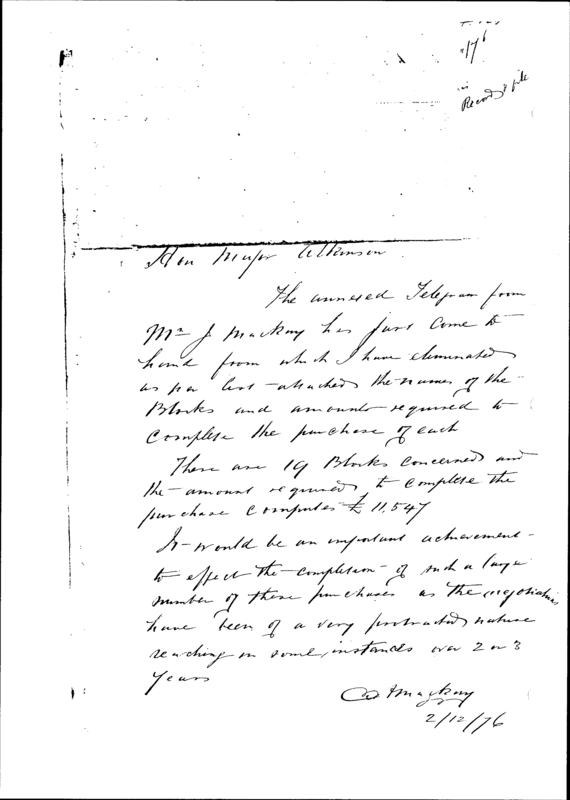 /76
Record & file
Hon Major Atkinson
The annexed Telegram from
Mr J Mackay has just come to
hand from which I have eliminated
as per list attached the names of the
Blocks and amounts required to
complete the purchase of each
There are 19 Blocks concerned and
the amount required to complete the
purchase computes £11,547
It would be an important achievement
to effect the completion of such a large
number of these purchases as the negotiations
have been of a very protracted nature
reaching in some instances over 2 or 3
years
Mackay
2/12/76